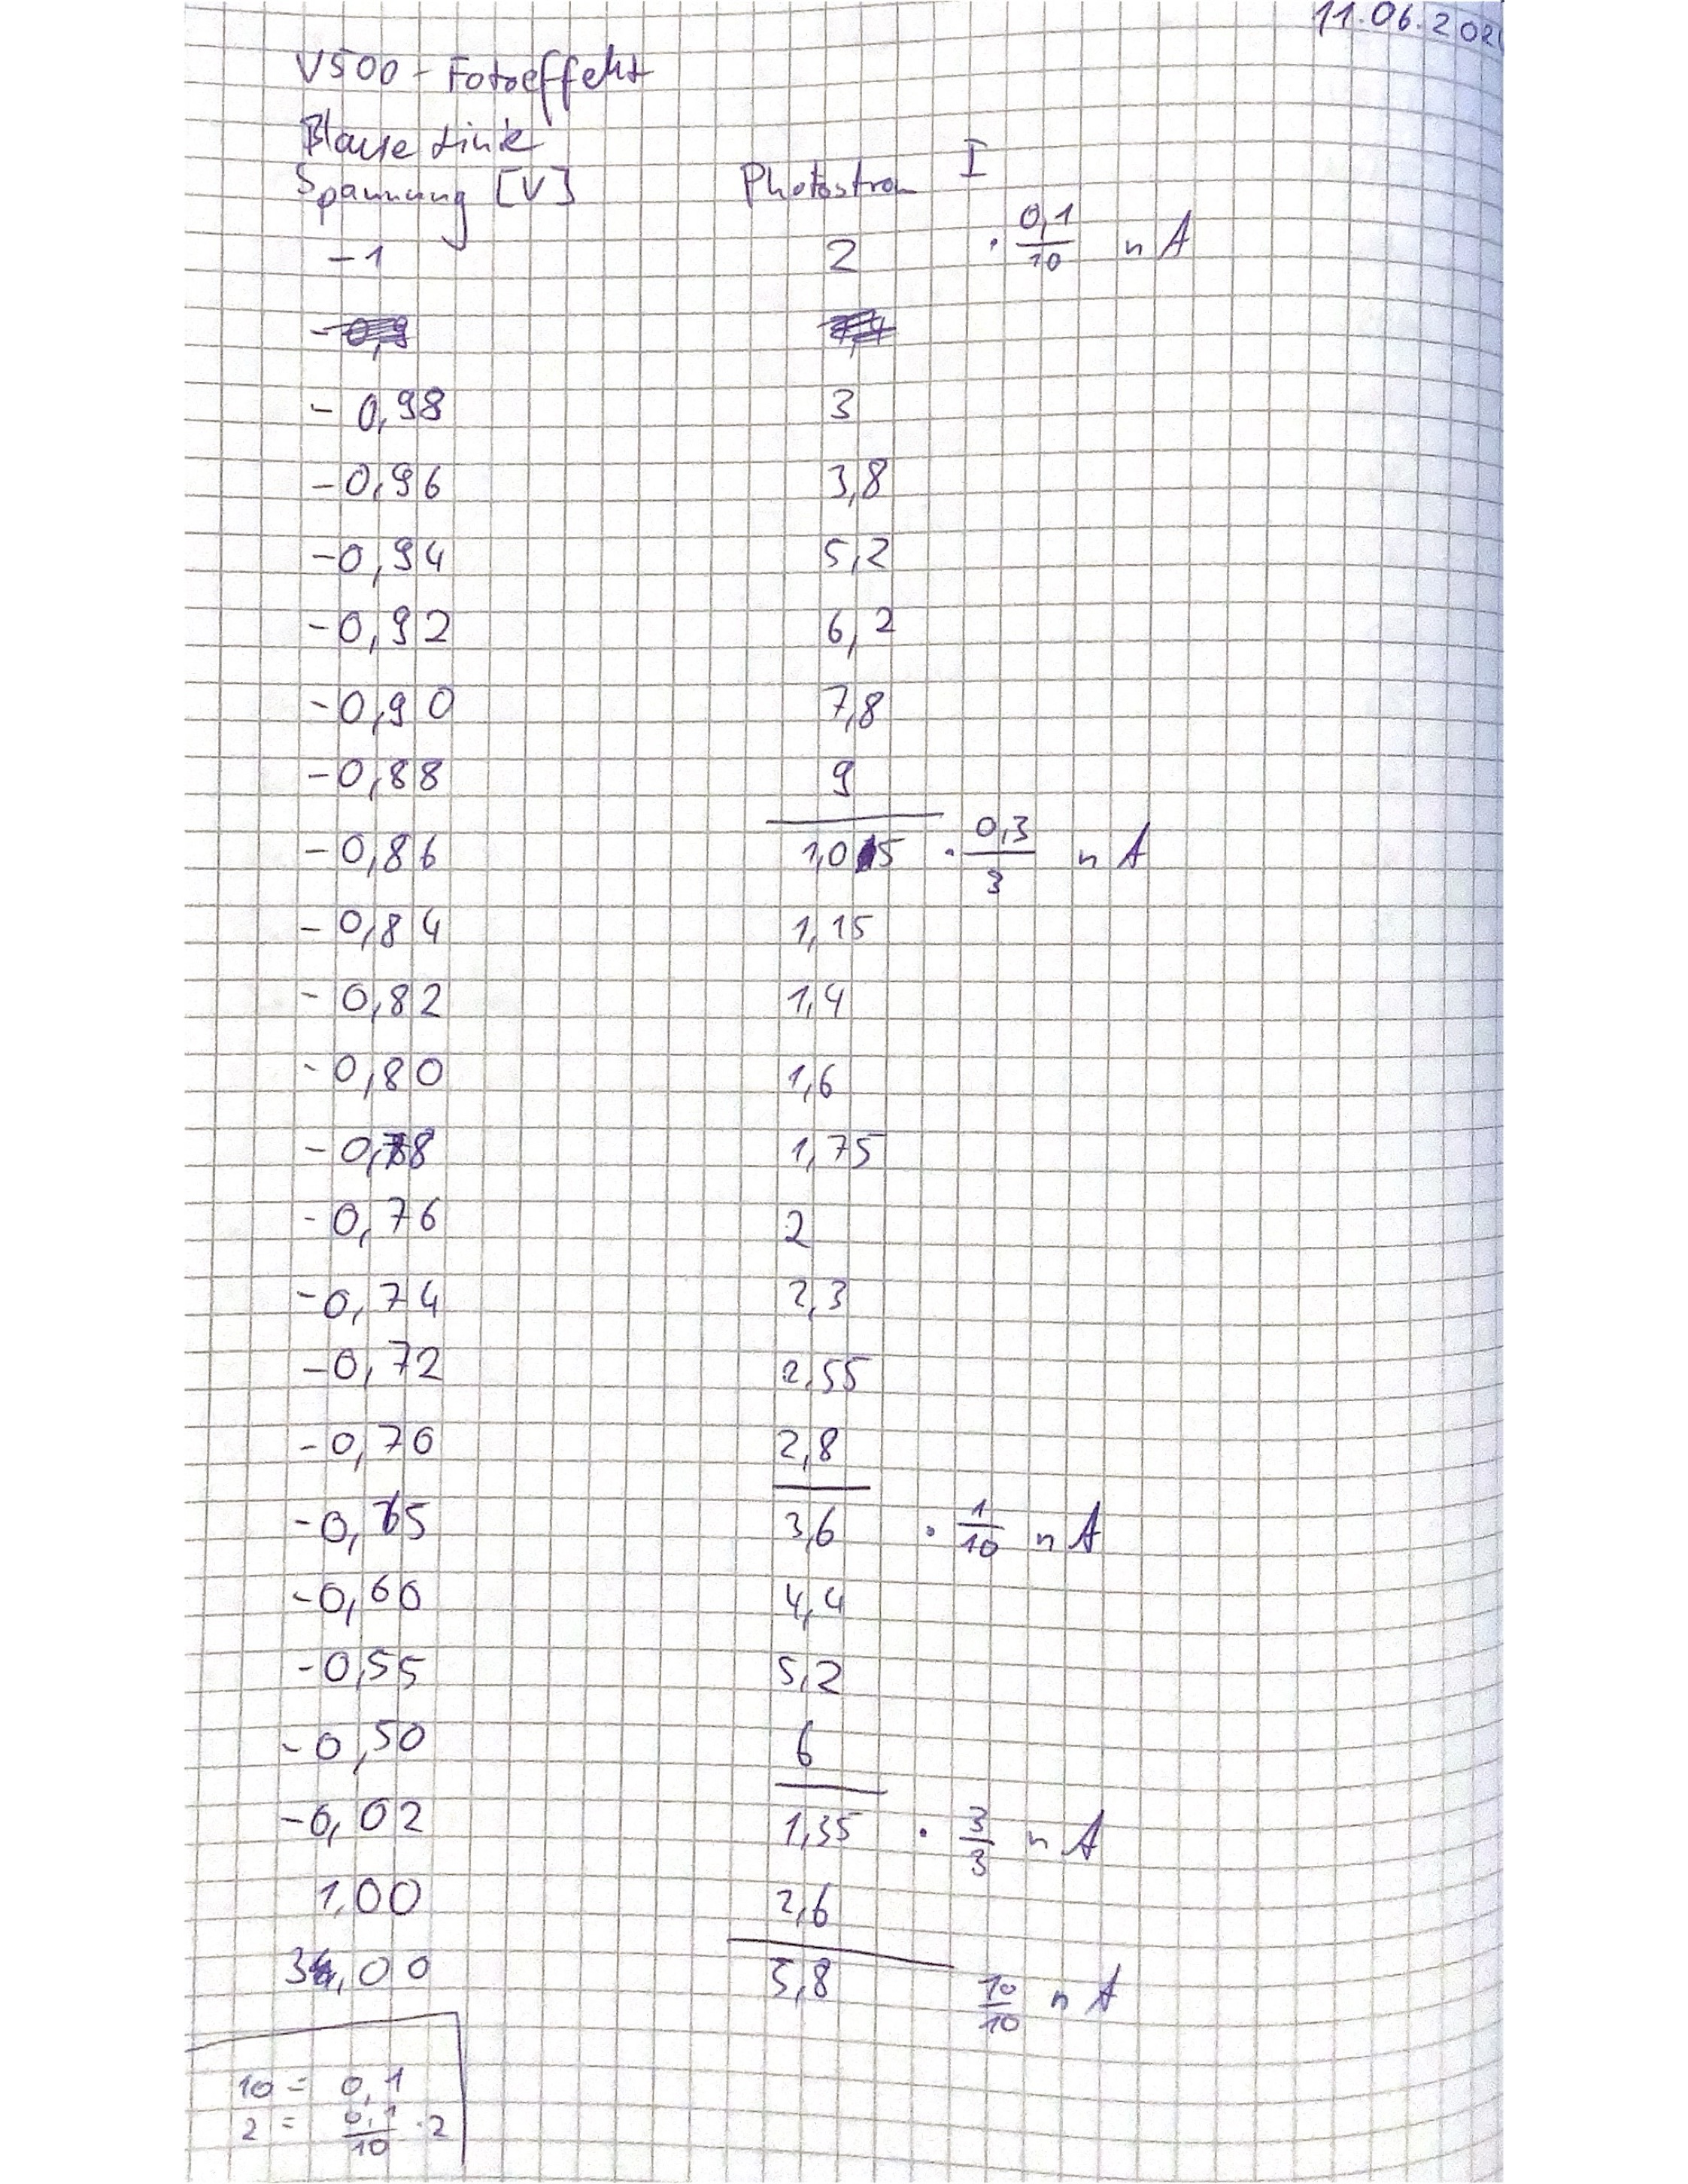 11.06.202
V500 - Fotoeffekt
Blaue Linie
Spannung [V] Photostrom I
-1 2 · 0,1/10 nA
-0,98 3
-0,96 3,8
-0,94 5,2
-0,92 6,2
-0,90 7,8
-0,88 9
-0,86 1,05 · 0,3/3 nA
-0,84 1,15
-0,82 1,4
-0,80 1,6
-0,78 1,75
-0,76 2
-0,74 2,3
-0,72 2,55
-0,70 2,8
-0,65 3,6 · 1/10 nA
-0,60 4,4
-0,55 5,2
-0,50 6
-0,02 1,35 · 3/3 nA
1,00 2,6
3,00 5,8 10/10 nA
10 = 0,1
2 = 0,1/10 · 2